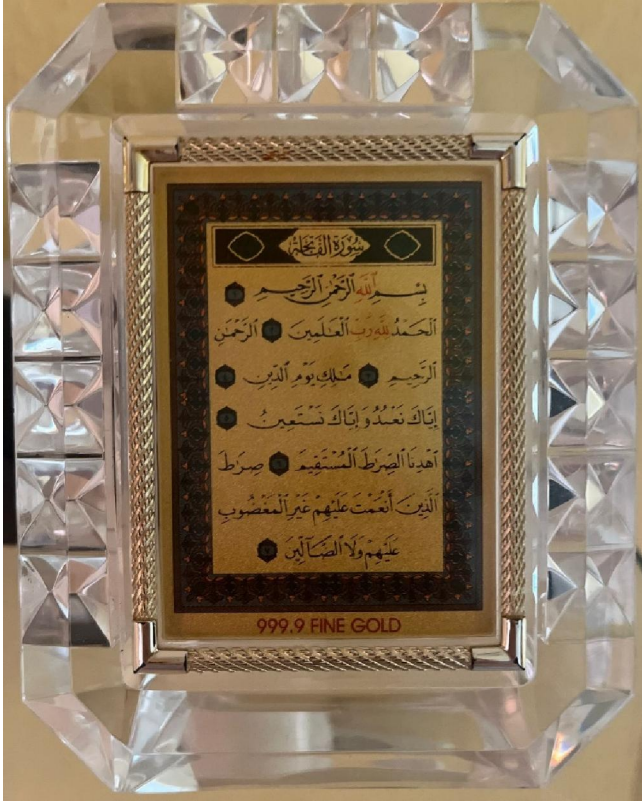 سُورَةُ الْفَاتِحَةِ
بِسْمِ ٱللَّهِ ٱلرَّحْمَٰنِ ٱلرَّحِيمِ
ٱلْحَمْدُ لِلَّهِ رَبِّ ٱلْعَٰلَمِينَ ٱلرَّحْمَٰنِ
ٱلرَّحِيمِ مَٰلِكِ يَوْمِ ٱلدِّينِ
إِيَّاكَ نَعْبُدُ وَإِيَّاكَ نَسْتَعِينُ
ٱهْدِنَا ٱلصِّرَٰطَ ٱلْمُسْتَقِيمَ صِرَٰطَ
ٱلَّذِينَ أَنْعَمْتَ عَلَيْهِمْ غَيْرِ ٱلْمَغْضُوبِ
عَلَيْهِمْ وَلَا ٱلضَّآلِّينَ
999.9 FINE GOLD